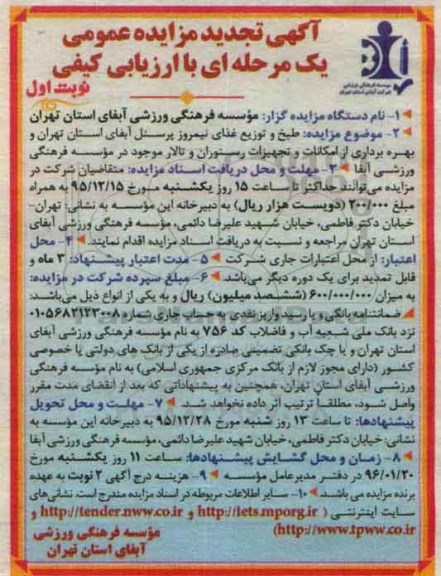 آگهی تجدید مزایده عمومی
یک مرحله ای با ارزیابی کیفی
نوبت اول
موسسه فرهنگی ورزشی
شرکت آبفای استان تهران
۱- نام دستگاه مزایده گزار: مؤسسه فرهنگی ورزشی آبفای استان تهران
۲- موضوع مزایده: طبخ و توزیع غذای نیمروز پرسنل آبفای استان تهران و
بهره برداری از امکانات و تجهیزات رستوران و تالار موجود در مؤسسه فرهنگی
ورزشی آبفا ۳- مهلت و محل دریافت اسناد مزایده: متقاضیان شرکت در
مزایده می‌توانند حداکثر تا ساعت ۱۵ روز یکشنبه مورخ ۹۵/۱۲/۱۵ به همراه
مبلغ ۲۰۰/۰۰۰ (دویست هزار ریال) به دبیرخانه این مؤسسه به نشانی: تهران-
خیابان دکتر فاطمی، خیابان شهید علیرضا دائمی، مؤسسه فرهنگی ورزشی آبفای
استان تهران مراجعه و نسبت به دریافت اسناد مزایده اقدام نمایند. ۴- محل
اعتبار: از محل اعتبارات جاری شرکت ۵- مدت اعتبار پیشنهاد: ۳ ماه و
قابل تمدید برای یک دوره دیگر می‌باشد. ۶- مبلغ سپرده شرکت در مزایده:
به میزان ۶۰۰/۰۰۰/۰۰۰ (ششصد میلیون) ریال و به یکی از انواع ذیل می‌باشد:
ضمانتنامه بانکی و یا رسید واریز نقدی به حساب جاری شماره ۰۱۰۵۶۸۲۱۲۳۰۰۸
نزد بانک ملی شعبه آب و فاضلاب کد ۷۵۶ به نام مؤسسه فرهنگی ورزشی آبفای
استان تهران و یا چک بانکی تضمینی صادره از یکی از بانک های دولتی یا خصوصی
کشور (دارای مجوز لازم از بانک مرکزی جمهوری اسلامی) به نام مؤسسه فرهنگی
ورزشی آبفای استان تهران، همچنین به پیشنهاداتی که بعد از انقضای مدت مقرر
واصل شود، مطلقاً ترتیب اثر داده نخواهد شد. ۷- مهلت و محل تحویل
پیشنهادها: تا ساعت ۱۳ روز شنبه مورخ ۹۵/۱۲/۲۸ به دبیرخانه این مؤسسه به
نشانی: خیابان دکتر فاطمی، خیابان شهید علیرضا دائمی، مؤسسه فرهنگی ورزشی آبفا
۸- زمان و محل گشایش پیشنهادها: ساعت ۱۱ روز یکشنبه مورخ
۹۶/۰۱/۲۰ در دفتر مدیرعامل مؤسسه ۹- هزینه درج آگهی ۲ نوبت به عهده
برنده مزایده می باشد. ۱۰- سایر اطلاعات مربوطه در اسناد مزایده مندرج است. نشانی‌های
سایت اینترنتی ( http://iets.mporg.ir و http://tender.nww.co.ir و
http://www.tpww.co.ir)
مؤسسه فرهنگی ورزشی
آبفای استان تهران